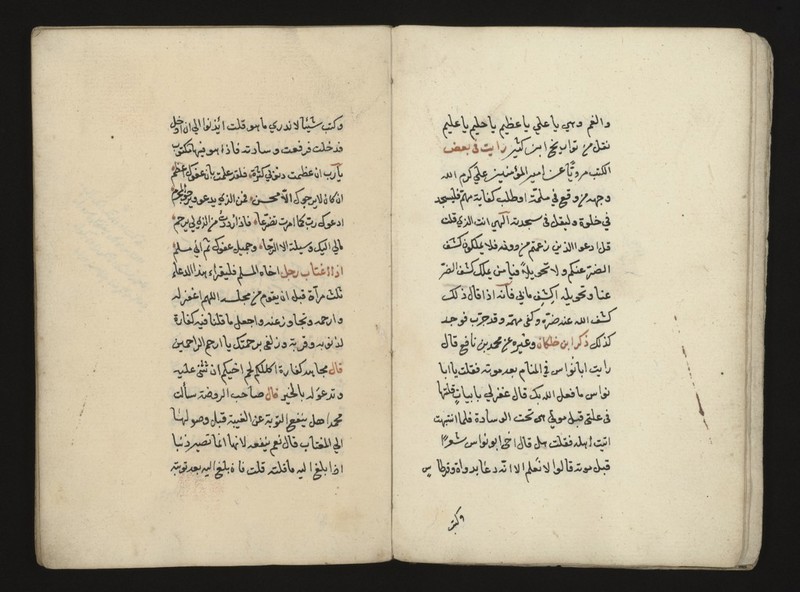 والغم وهي يا علي يا عظيم يا حليم يا عليم
نقل من تاريخ ابن كثير رايت في بعض
الكتب مرويًا عن امير المؤمنين علي كرم الله
وجهه من وقع في ملمة او طلب كفاية مهم فليسجد
في خلوة وليقل في سجدته الهي انت الذي قلت
قل ادعوا الذين زعمتم من دونه فلا يملكون كشف
الضر عنكم ولا تحويلا فيا من يملك كشف الضر
عنا وتحويله اكشف ما بي فانه اذا قال ذلك
كشف الله عنه ضره وكفى مهمه وقد جرب فوجد
كذلك ذكر ابن خلكان وغيره من محمد بن نافع قال
رايت ابا نواس في المنام بعد موته فقلت يا ابا
نواس ما فعل الله بك قال غفر لي بابيات قلتها
في علتي قبل موتي هى تحت الوسادة فلما انتبهت
اتيت اهله فقلت هل قال اخي ابو نواس شعرًا
قبل موته قالوا لا نعلم الا انه دعا بدواة وقرطاس
وكتب
وكتب شيئا لا ندري ما هو قلت ائذنوا لي ان ادخل
فدخلت فرفعت وسادته فاذا هو فيها مكتوب
يا رب ان عظمت ذنوبي كثرة فلقد علمت بان عفوك اعظم
ان كان لا يرجوك الا محسن فمن الذي يدعو ويرجو المجرم
ادعوك رب كما امرت تضرعا فاذا رددت من الذي لي يرحم
مالي اليك وسيلة الا الرجاء وجميل عفوك ثم اني مسلم
اذا اغتاب رجل اخاه المسلم فليقراء بهذا الدعاء
ثلث مرآة قبل ان يقوم من مجلسه اللهم اغفر له
وارحمه وتجاوز عنه واجعل ما قلنا فيه كفارة
لذنوبه وقربة وزلفى برحمتك يا ارحم الراحمين
قال مجاهد كفارة اكلكم لحم اخيكم ان تثنى عليه
وتدعو له بالخير قال صاحب الروضة سألت
محمدا هل ينفع التوبة عن الغيبة قبل وصولها
الي المغتاب قال نعم ينفعه لانها انما تصير ذنبا
اذا بلغ اليه ما قلته قلت فان بلغ اليه بعد توبته